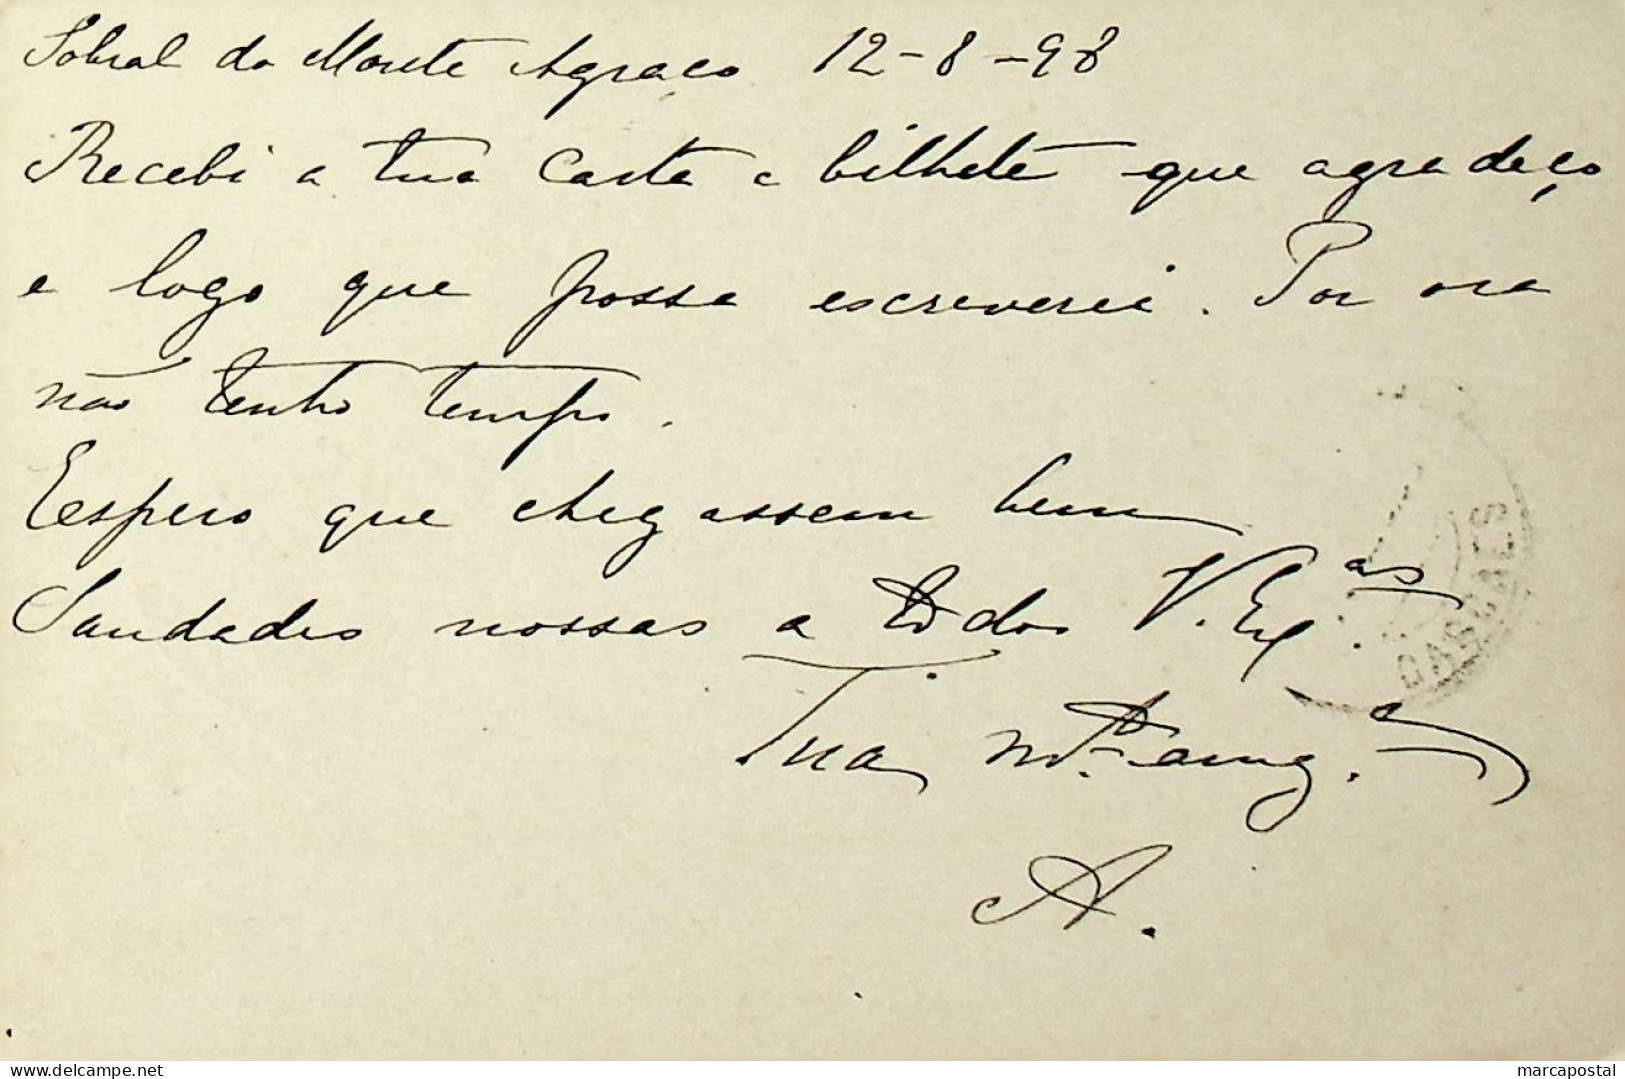 Sobral do Monte Agraço 12-8-98
Recebi a tua carta e bilhete que agradeço
e logo que possa escreverei. Por ora
não tenho tempo.
Espero que chegassem bem
Saudades nossas a todos V. Ex.as
Tua mt.º amig.
A.
CASCAES
delcampe.net
marcapostal